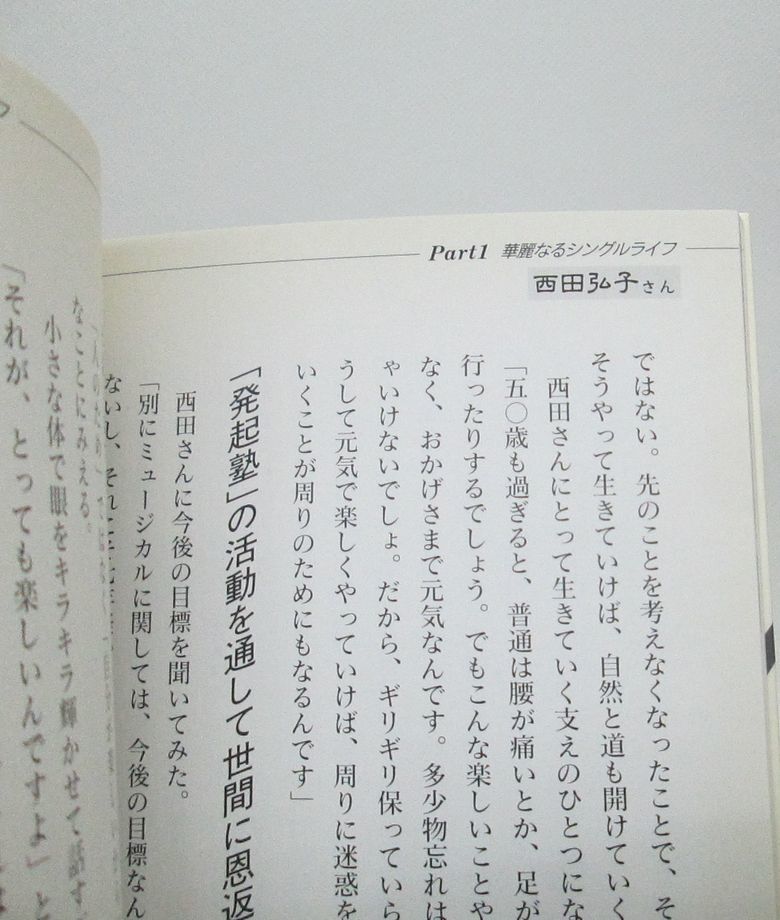 Part1 華麗なるシングルライフ
西田弘子さん
ではない。先のことを考えなくなったことで、そ
そうやって生きていけば、自然と道も開けていく
西田さんにとって生きていく支えのひとつにな
「五〇歳も過ぎると、普通は腰が痛いとか、足が
行ったりするでしょう。でもこんな楽しいことや
なく、おかげさまで元気なんです。多少物忘れは
ゃいけないでしょ。だから、ギリギリ保っていら
うして元気で楽しくやっていけば、周りに迷惑を
いくことが周りのためにもなるんです」
「発起塾」の活動を通して世間に恩返
西田さんに今後の目標を聞いてみた。
「別にミュージカルに関しては、今後の目標なん
ないし、それこそ
なことにみえる。
小さな体で眼をキラキラ輝かせて話す
「それが、とっても楽しいんですよ」と